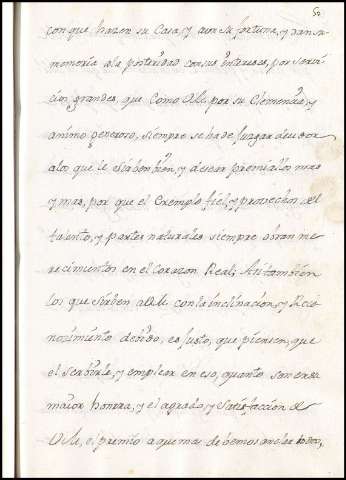 50
con que hazer su Casa, y aun su fortuna, y dar su
memoria a la posteridad con sus intereses, por servi-
cios grandes, que como VM. por su Clemencia, y
animo generoso, siempre se ha de juzgar deudor
a los que le sirben bien, y desear premiallos mas
y mas, por que el Exemplo fiel, y provechos del
talento, y partes naturales siempre obran me-
recimientos en el Corazon Real; Asi tambien
los que sirben a VM. con la inclinacion, y Reco-
nozimiento debido, es justo, que piensen, que
el serbirle, y emplear en eso, quanto son es la
maior honrra, y el agrado, y satisfaccion de
VM. el premio a que mas debemos anelar todos,